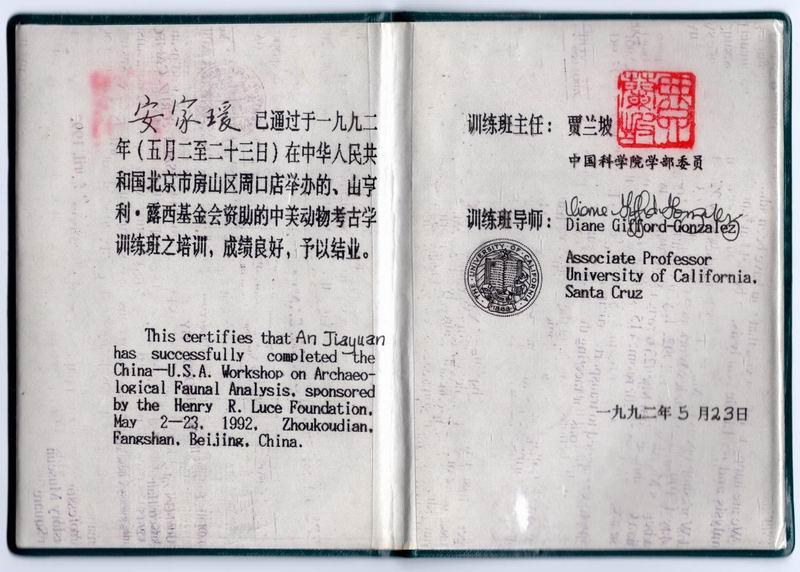 安家瑗 已通过于一九九二
年（五月二至二十三日）在中华人民共
和国北京市房山区周口店举办的、山亨
利·露西基金会资助的中美动物考古学
训练班之培训，成绩良好，予以结业。
This certifies that An Jiayuan
has successfully completed the
China—U.S.A. Workshop on Archaeo-
logical Faunal Analysis, sponsored
by the Henry R. Luce Foundation,
May 2—23, 1992, Zhoukoudian,
Fangshan, Beijing, China.
训练班主任： 贾兰坡
中国科学院学部委员
Diane Gifford-Gonzalez
训练班导师： Diane Gifford-Gonzalez
Associate Professor
University of California,
Santa Cruz
THE UNIVERSITY OF CALIFORNIA
1868
一九九二年 5 月23日